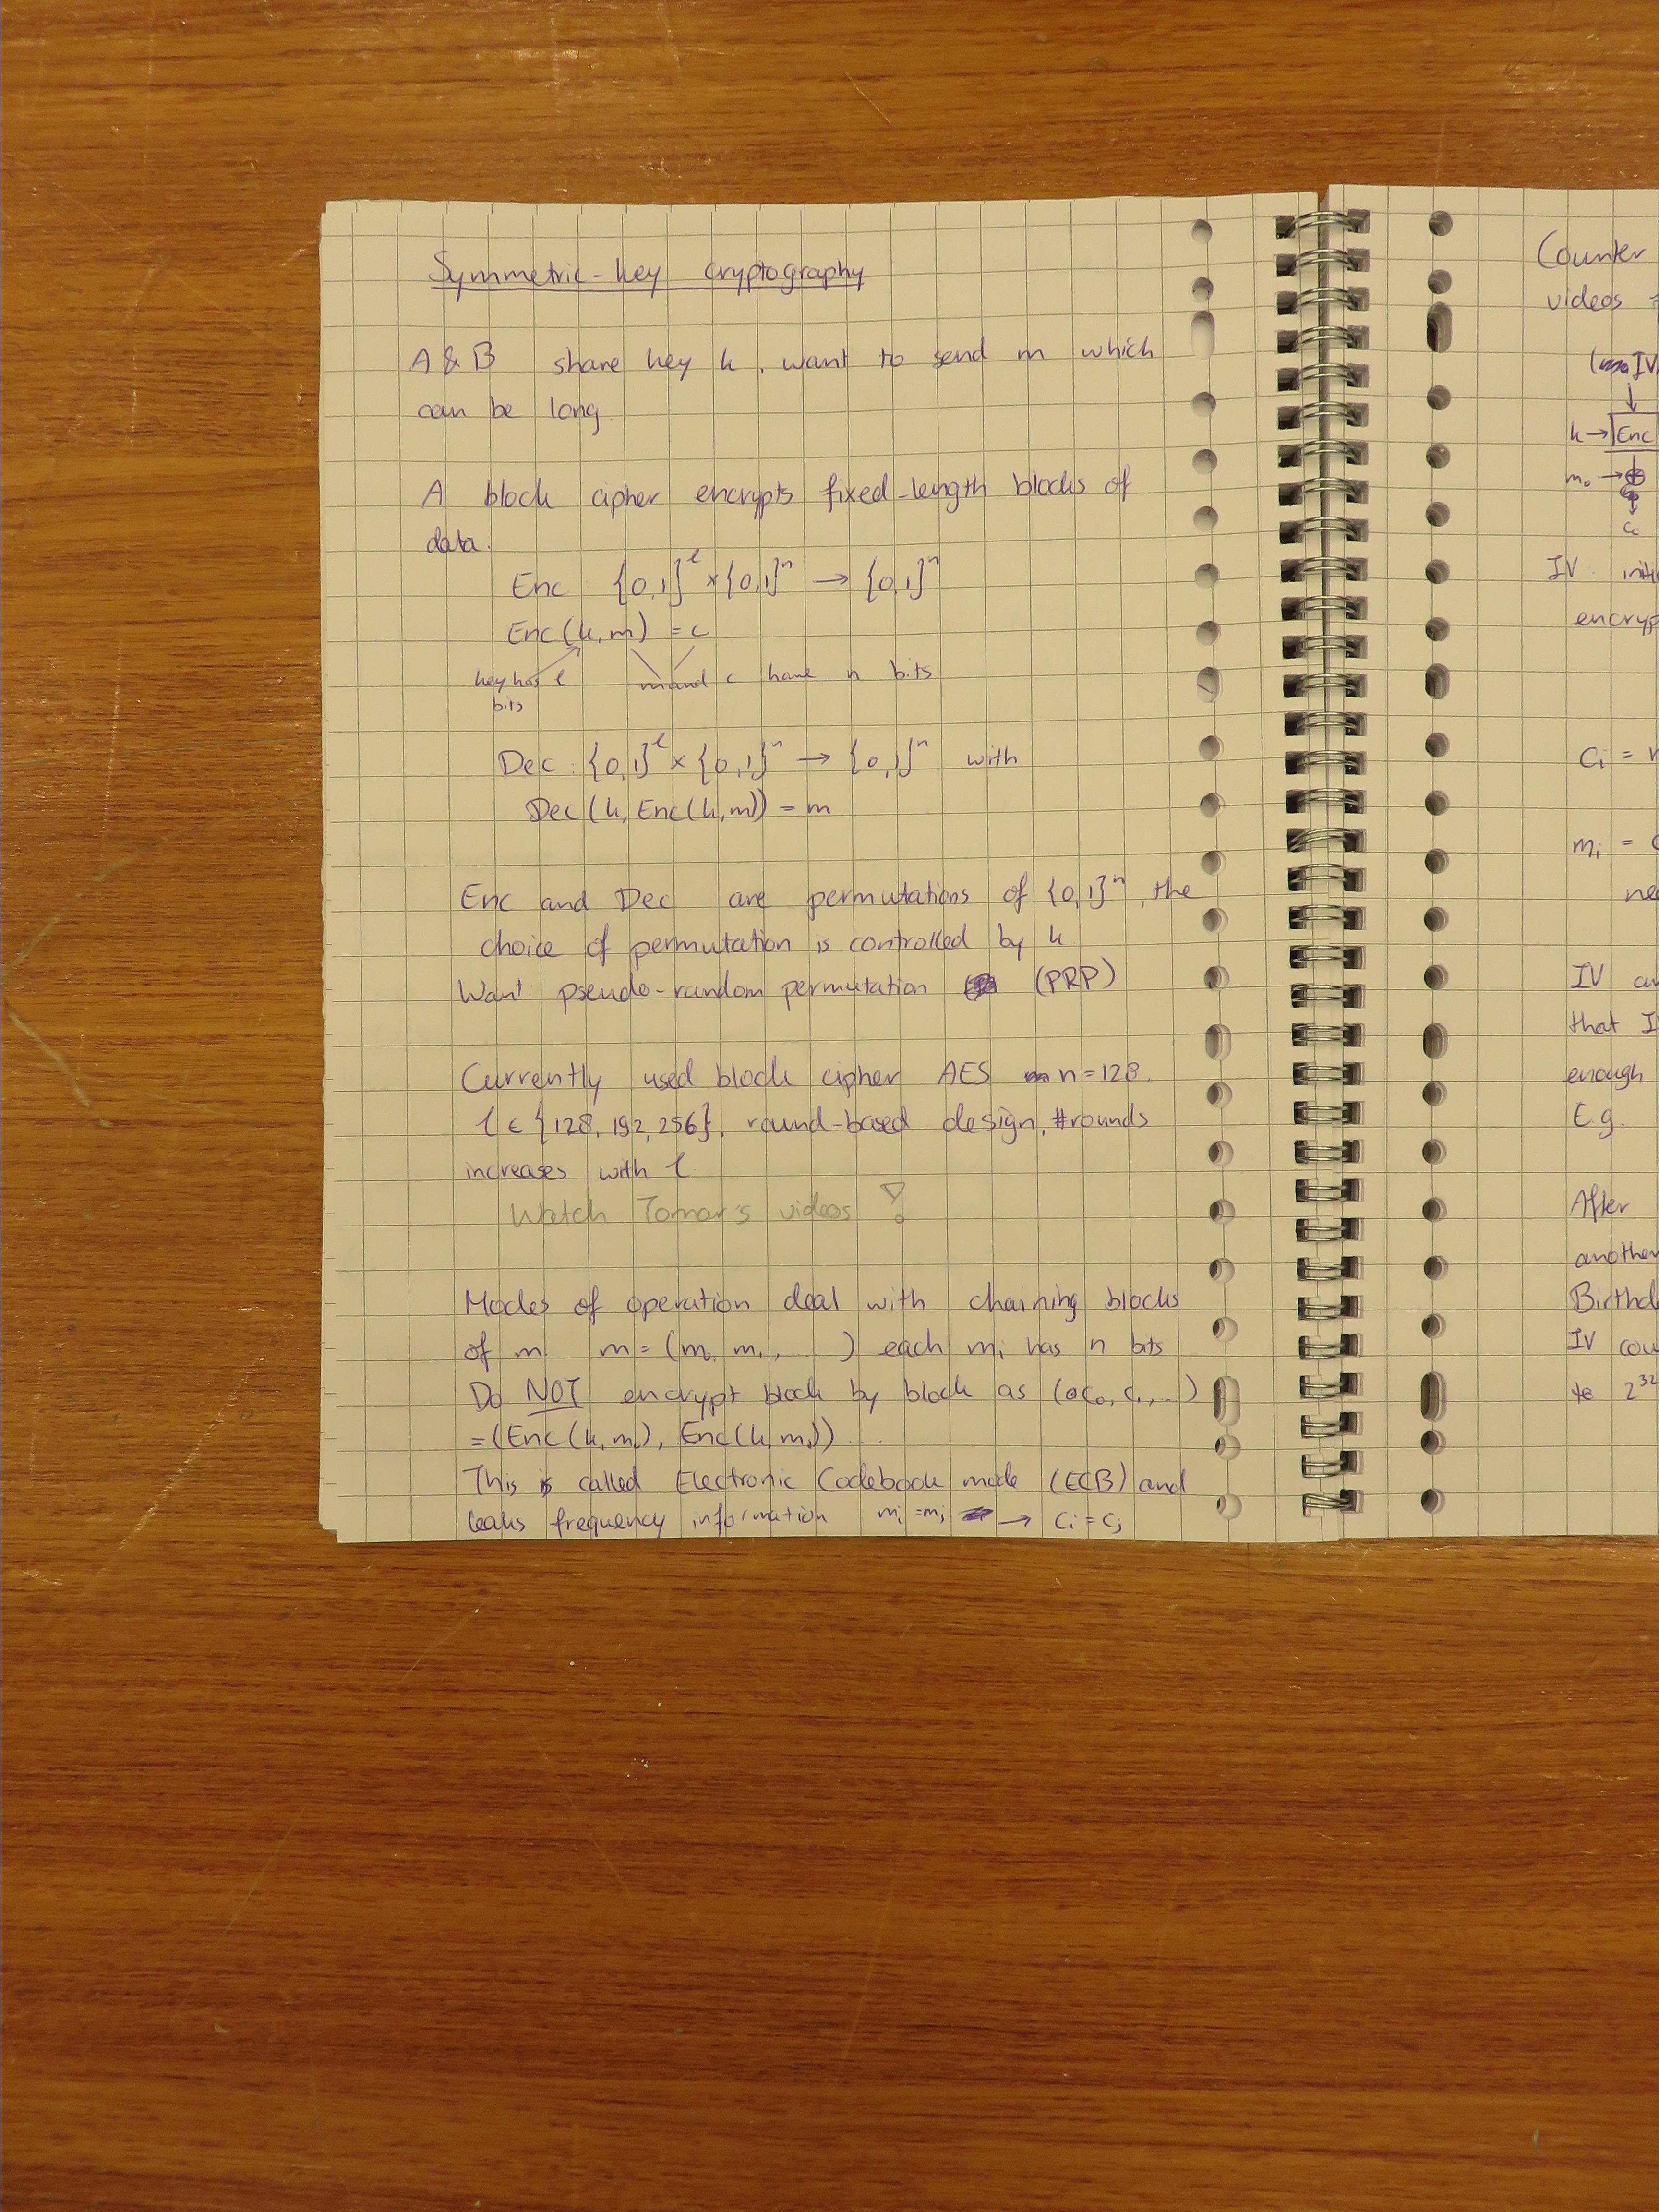 Symmetric-key cryptography
A & B share key k, want to send m which
can be long
A block cipher encrypts fixed-length blocks of
data.
Enc {0,1}^l × {0,1}^n → {0,1}^n
Enc(k,m) = c
key has l
bits
m and c have n bits
Dec : {0,1}^l × {0,1}^n → {0,1}^n with
Dec(k, Enc(k,m)) = m
Enc and Dec are permutations of {0,1}^n, the
choice of permutation is controlled by k
Want pseudo-random permutation (PRP)
Currently used block cipher AES n=128.
l ∈ {128, 192, 256}, round-based design, #rounds
increases with l
Watch videos !
Modes of operation deal with chaining blocks
of m. m = (m₀, m₁, ...) each mᵢ has n bits
Do NOT encrypt block by block as (c₀, c₁, ...)
= (Enc(k, m₀), Enc(k, m₁)) ...
This is called Electronic Codebook mode (ECB) and
leaks frequency information mᵢ = mⱼ → cᵢ = cⱼ
Counter
videos
IV
k → Enc
m₀ → ⊕
IV
cᵢ =
mᵢ =
IV
that
enough
E.g.
After
another
IV
2^32